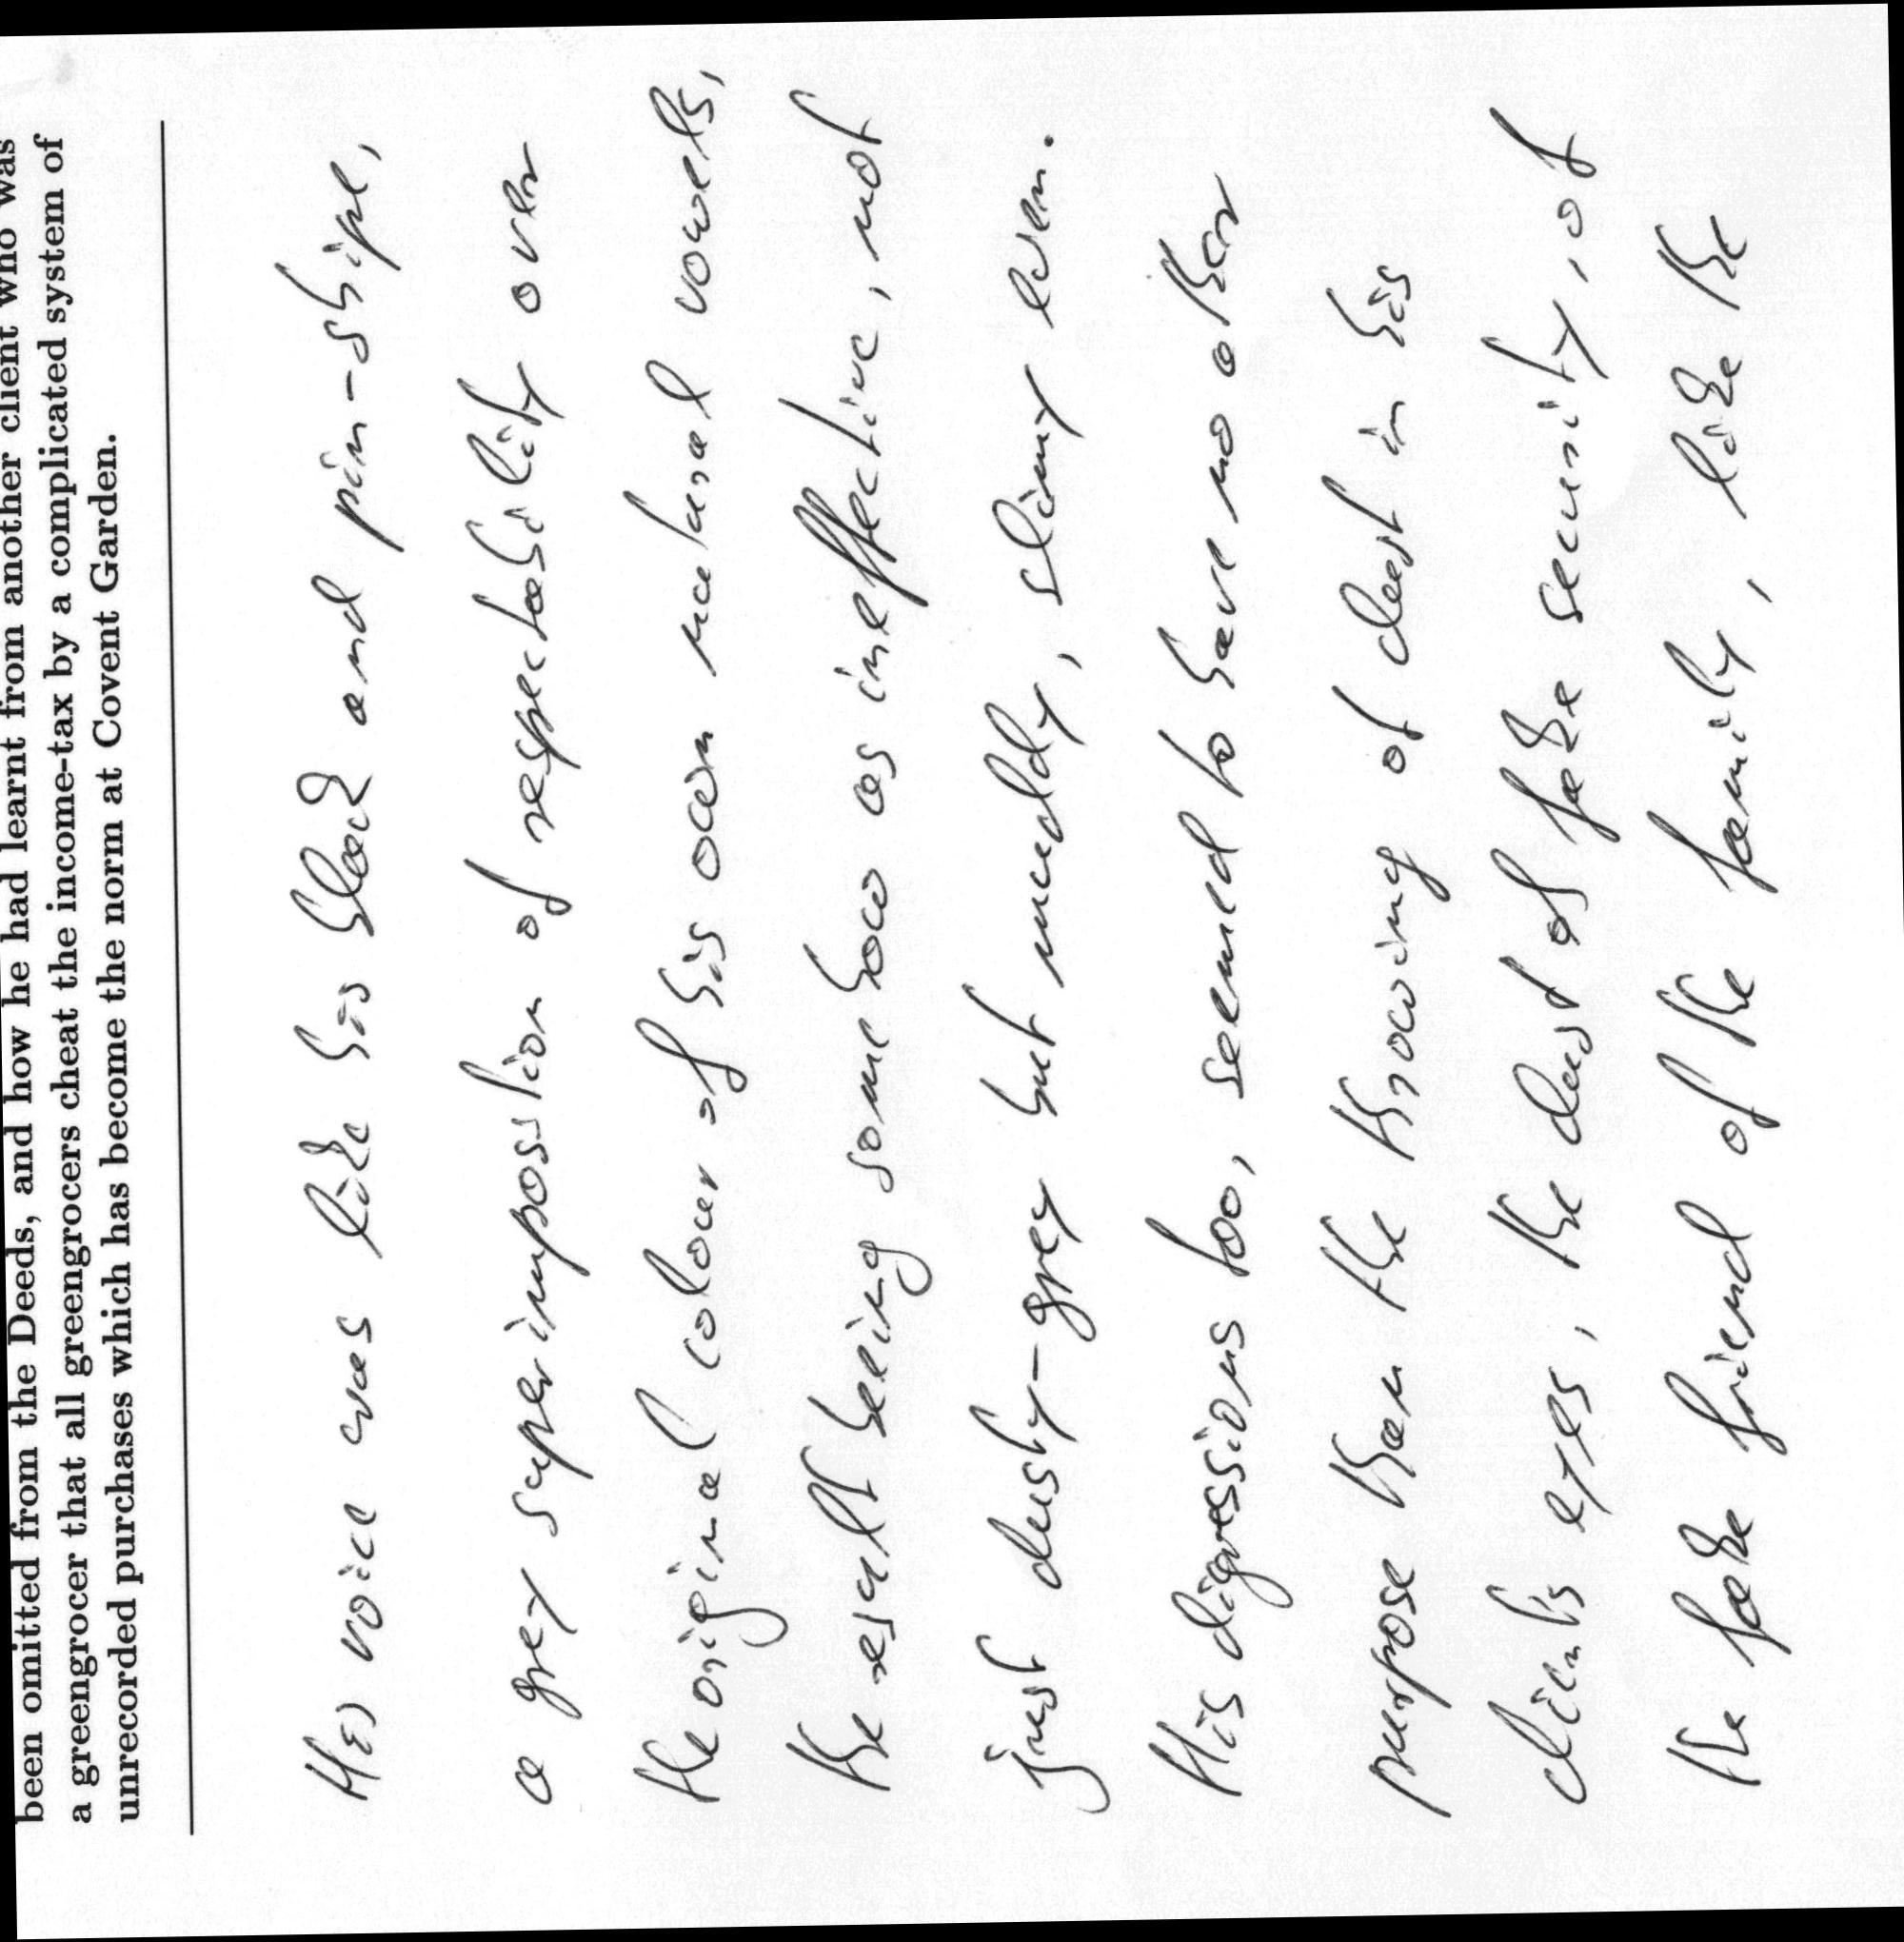 been omitted from the Deeds, and how he had learnt from another client who was
a greengrocer that all greengrocers cheat the income-tax by a complicated system of
unrecorded purchases which has become the norm at Covent Garden.
His voice was like his black and pin-stripe,
a grey superimposition of respectability over
the original colour of his own natural vowels,
the result being somehow as ineffective, not
just dusty-grey but muddy, slimy even.
His digressions too, seemed to have no other
purpose than the throwing of dust in his
clients eyes, the dust of fake security, of
the fake friend of the family, like the